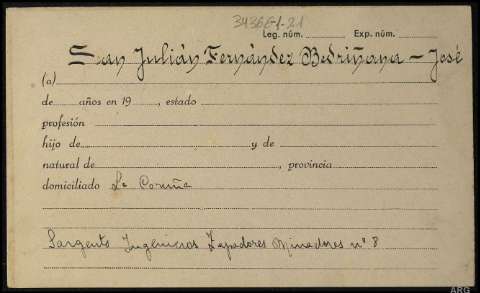 34366-1-21
Leg. núm. Exp. núm.
San Julián Fernández Bedriñana - José
(a)
de años en 19 , estado
profesión
hijo de y de
natural de , provincia
domiciliado La Coruña
Sargento Ingenieros Zapadores Minadores nº 8
ARG